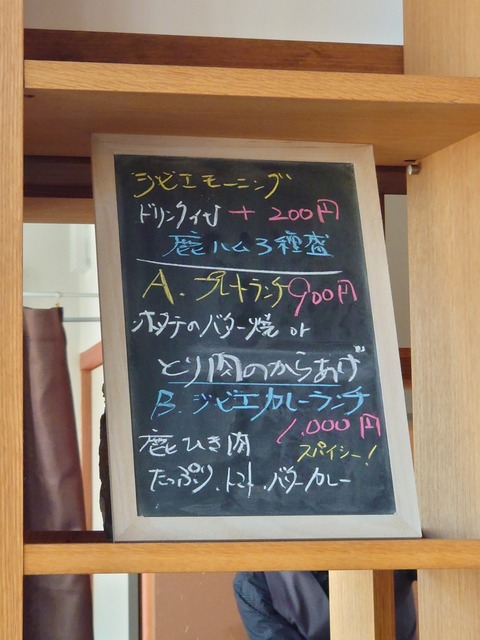 ジビエモーニング
ドリンク付 + 200円
鹿ハム3種盛
A. プレートランチ900円
ホタテのバター焼 or
とり肉のからあげ
B. ジビエカレーランチ
1,000円
鹿とひき肉 スパイシー!
たっぷり、トマト、バターカレー